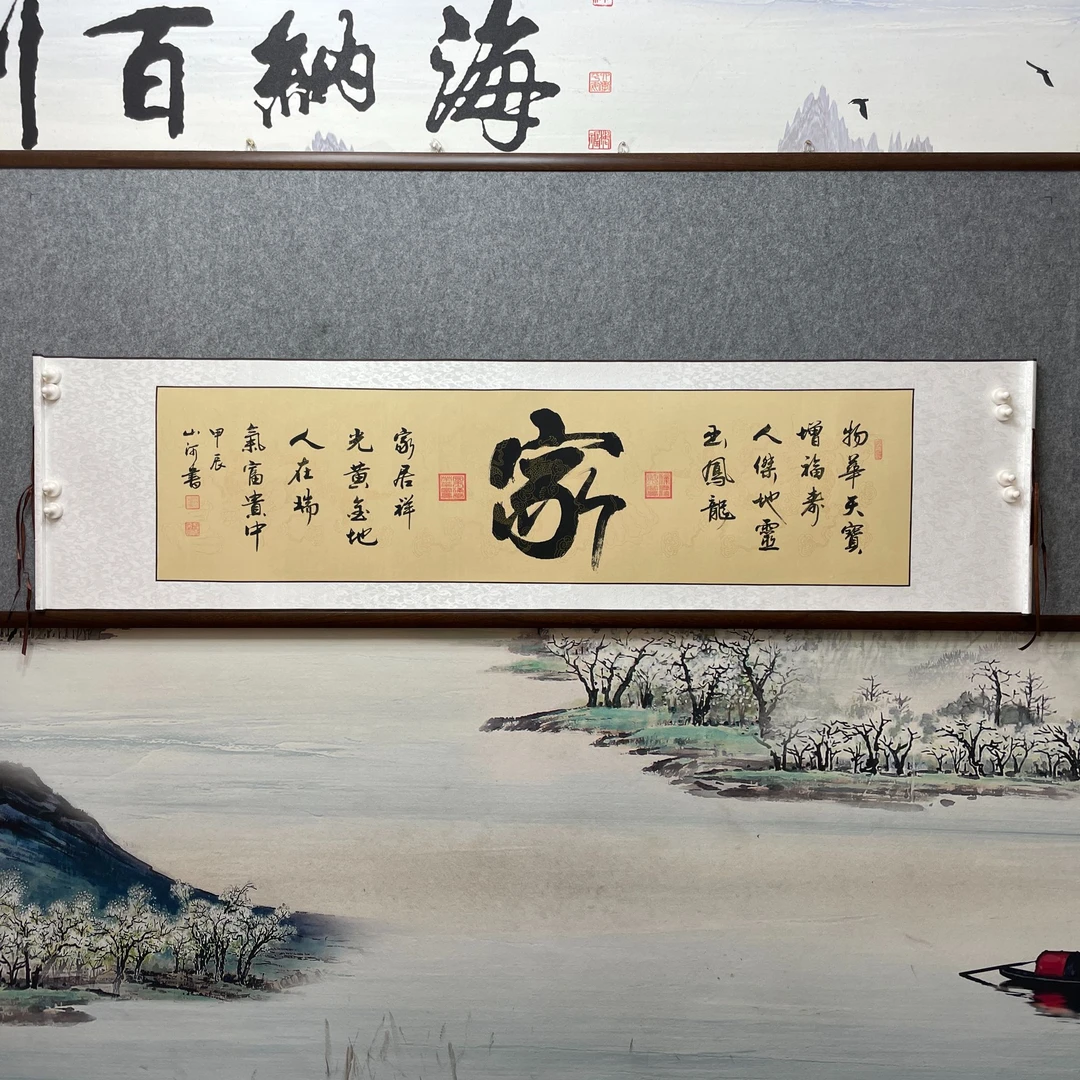 海納百川
物華天寶
增福壽
人傑地靈
出鳳龍
家
家居祥
光黃金地
人在瑞
氣富貴中
甲辰
山河書